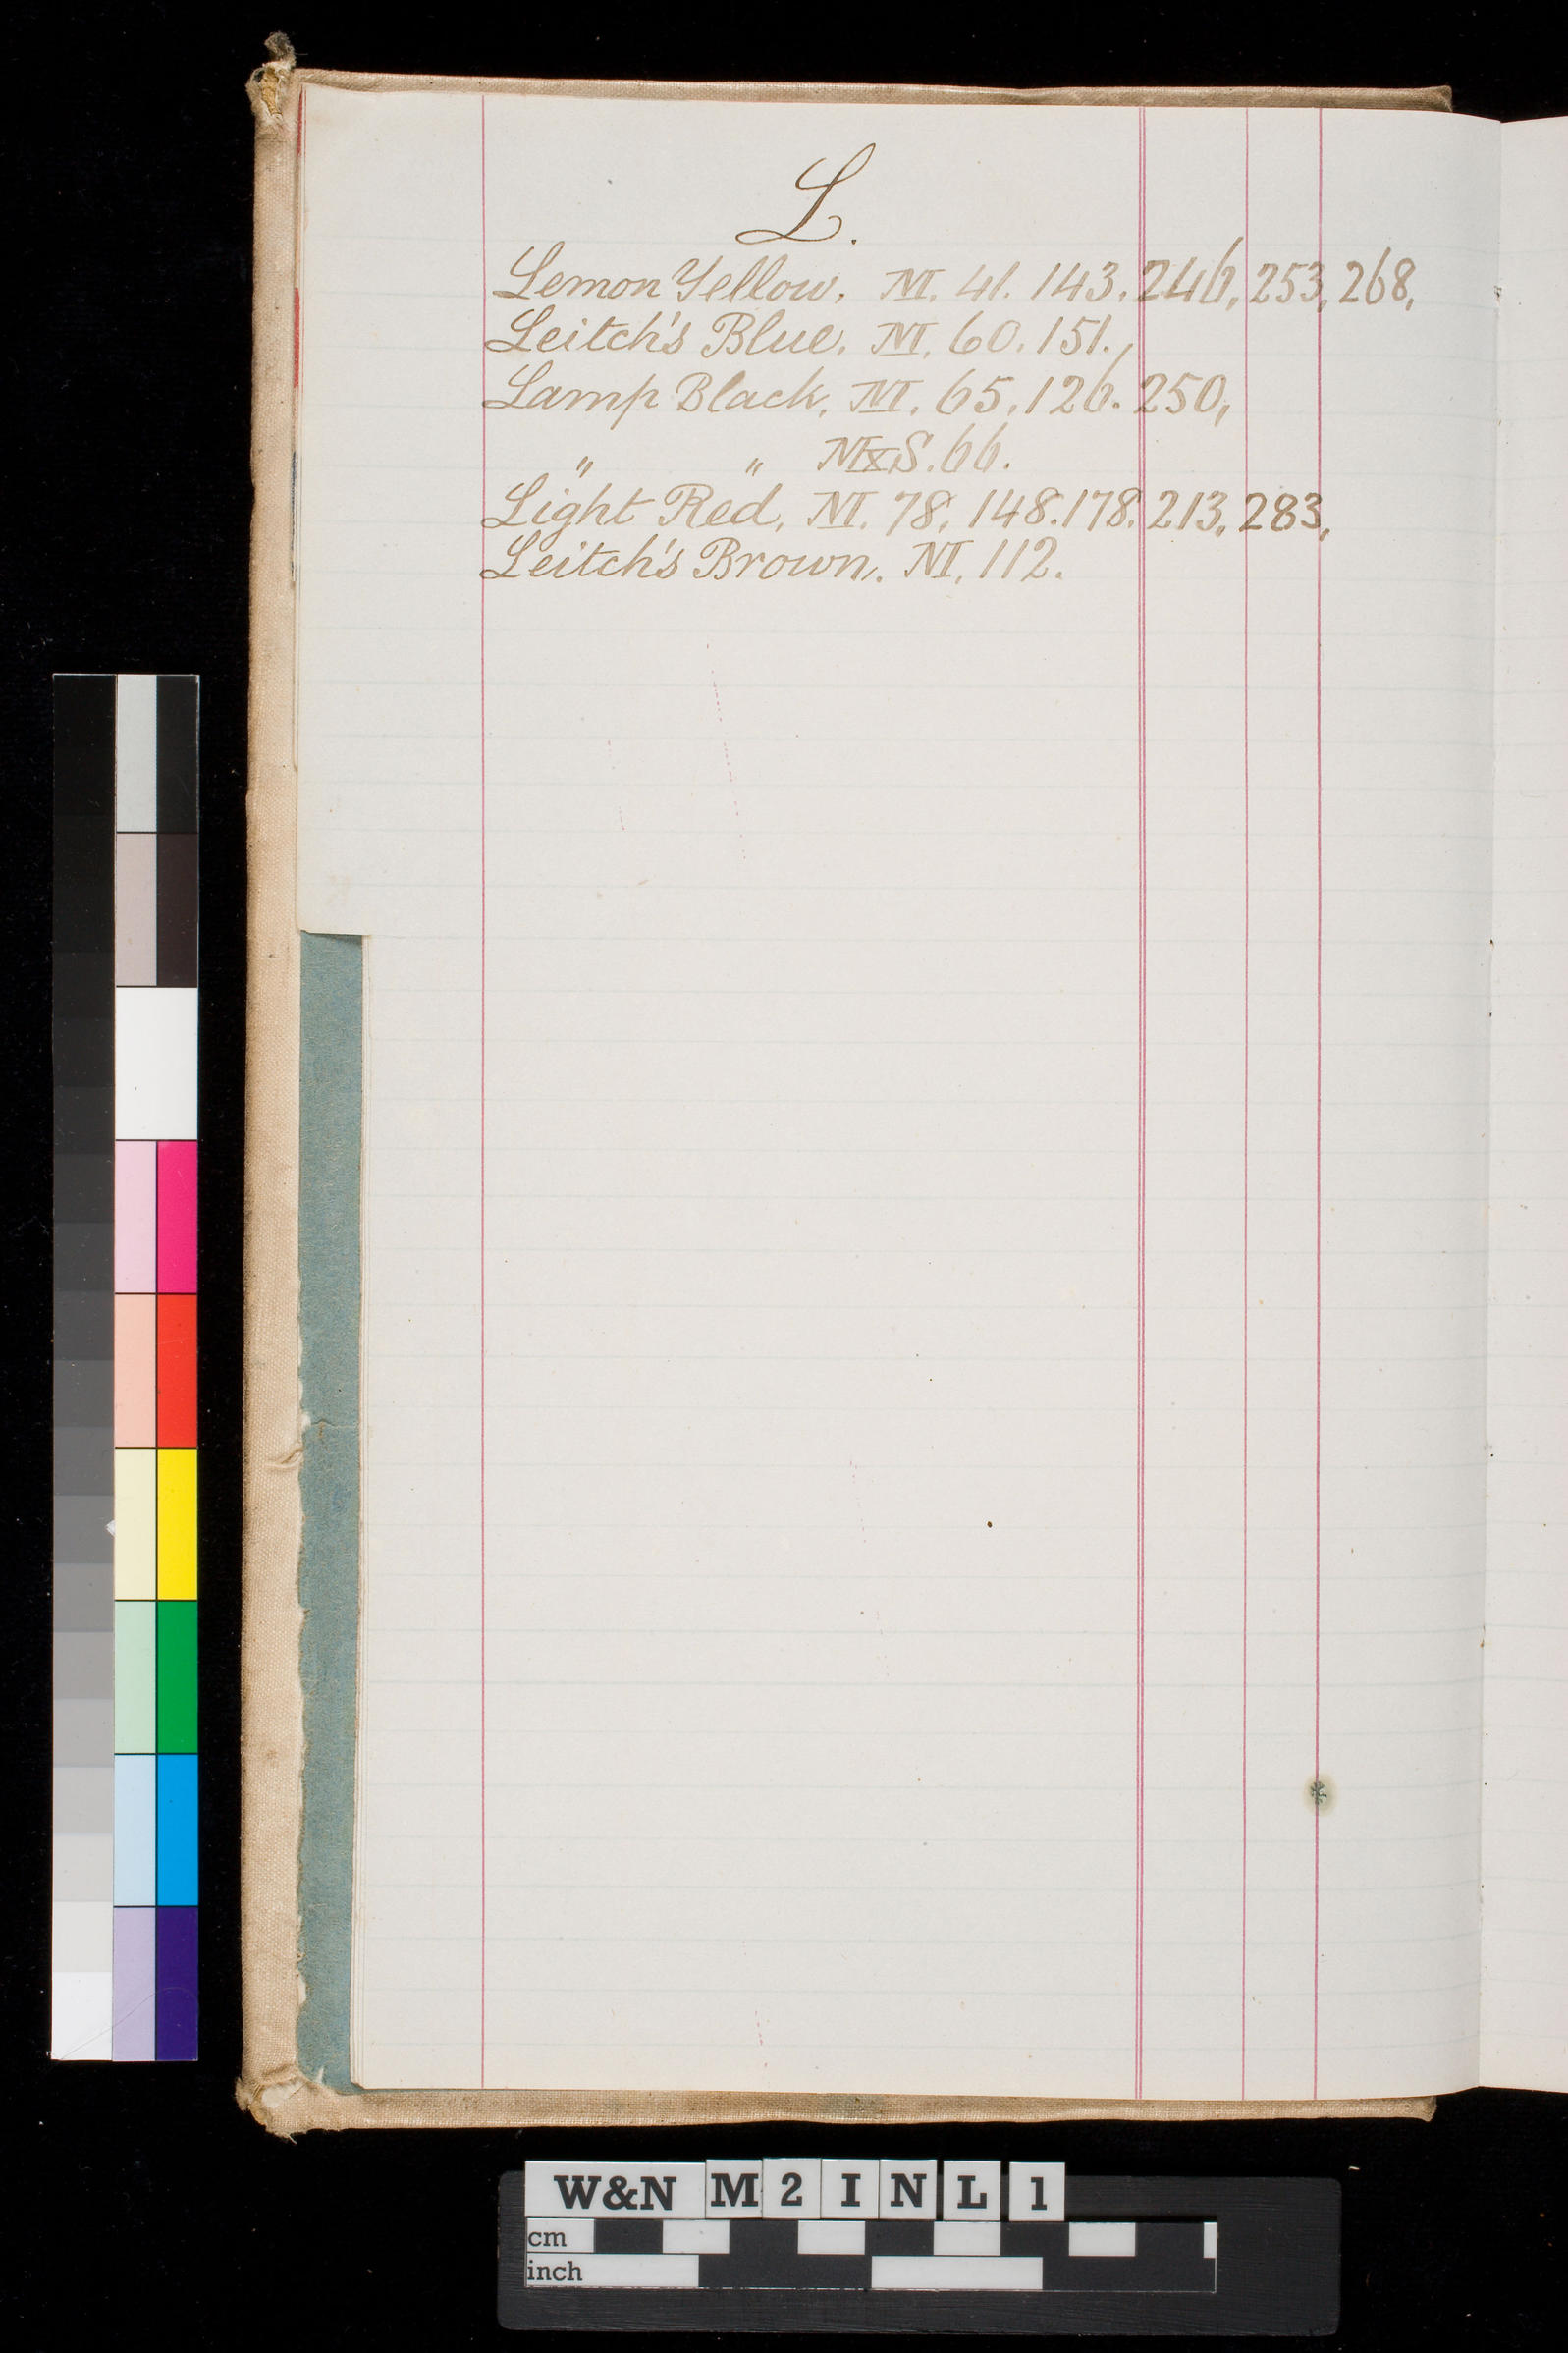 L.
Lemon Yellow. NI. 41. 143. 246, 253, 268,
Leitch's Blue. NI. 60. 151.
Lamp Black. NI. 65, 126. 250,
" " S. 66.
Light Red. NI. 78. 148. 178. 213, 283,
Leitch's Brown. NI. 112.
W&N M 2 I N L 1
cm
inch